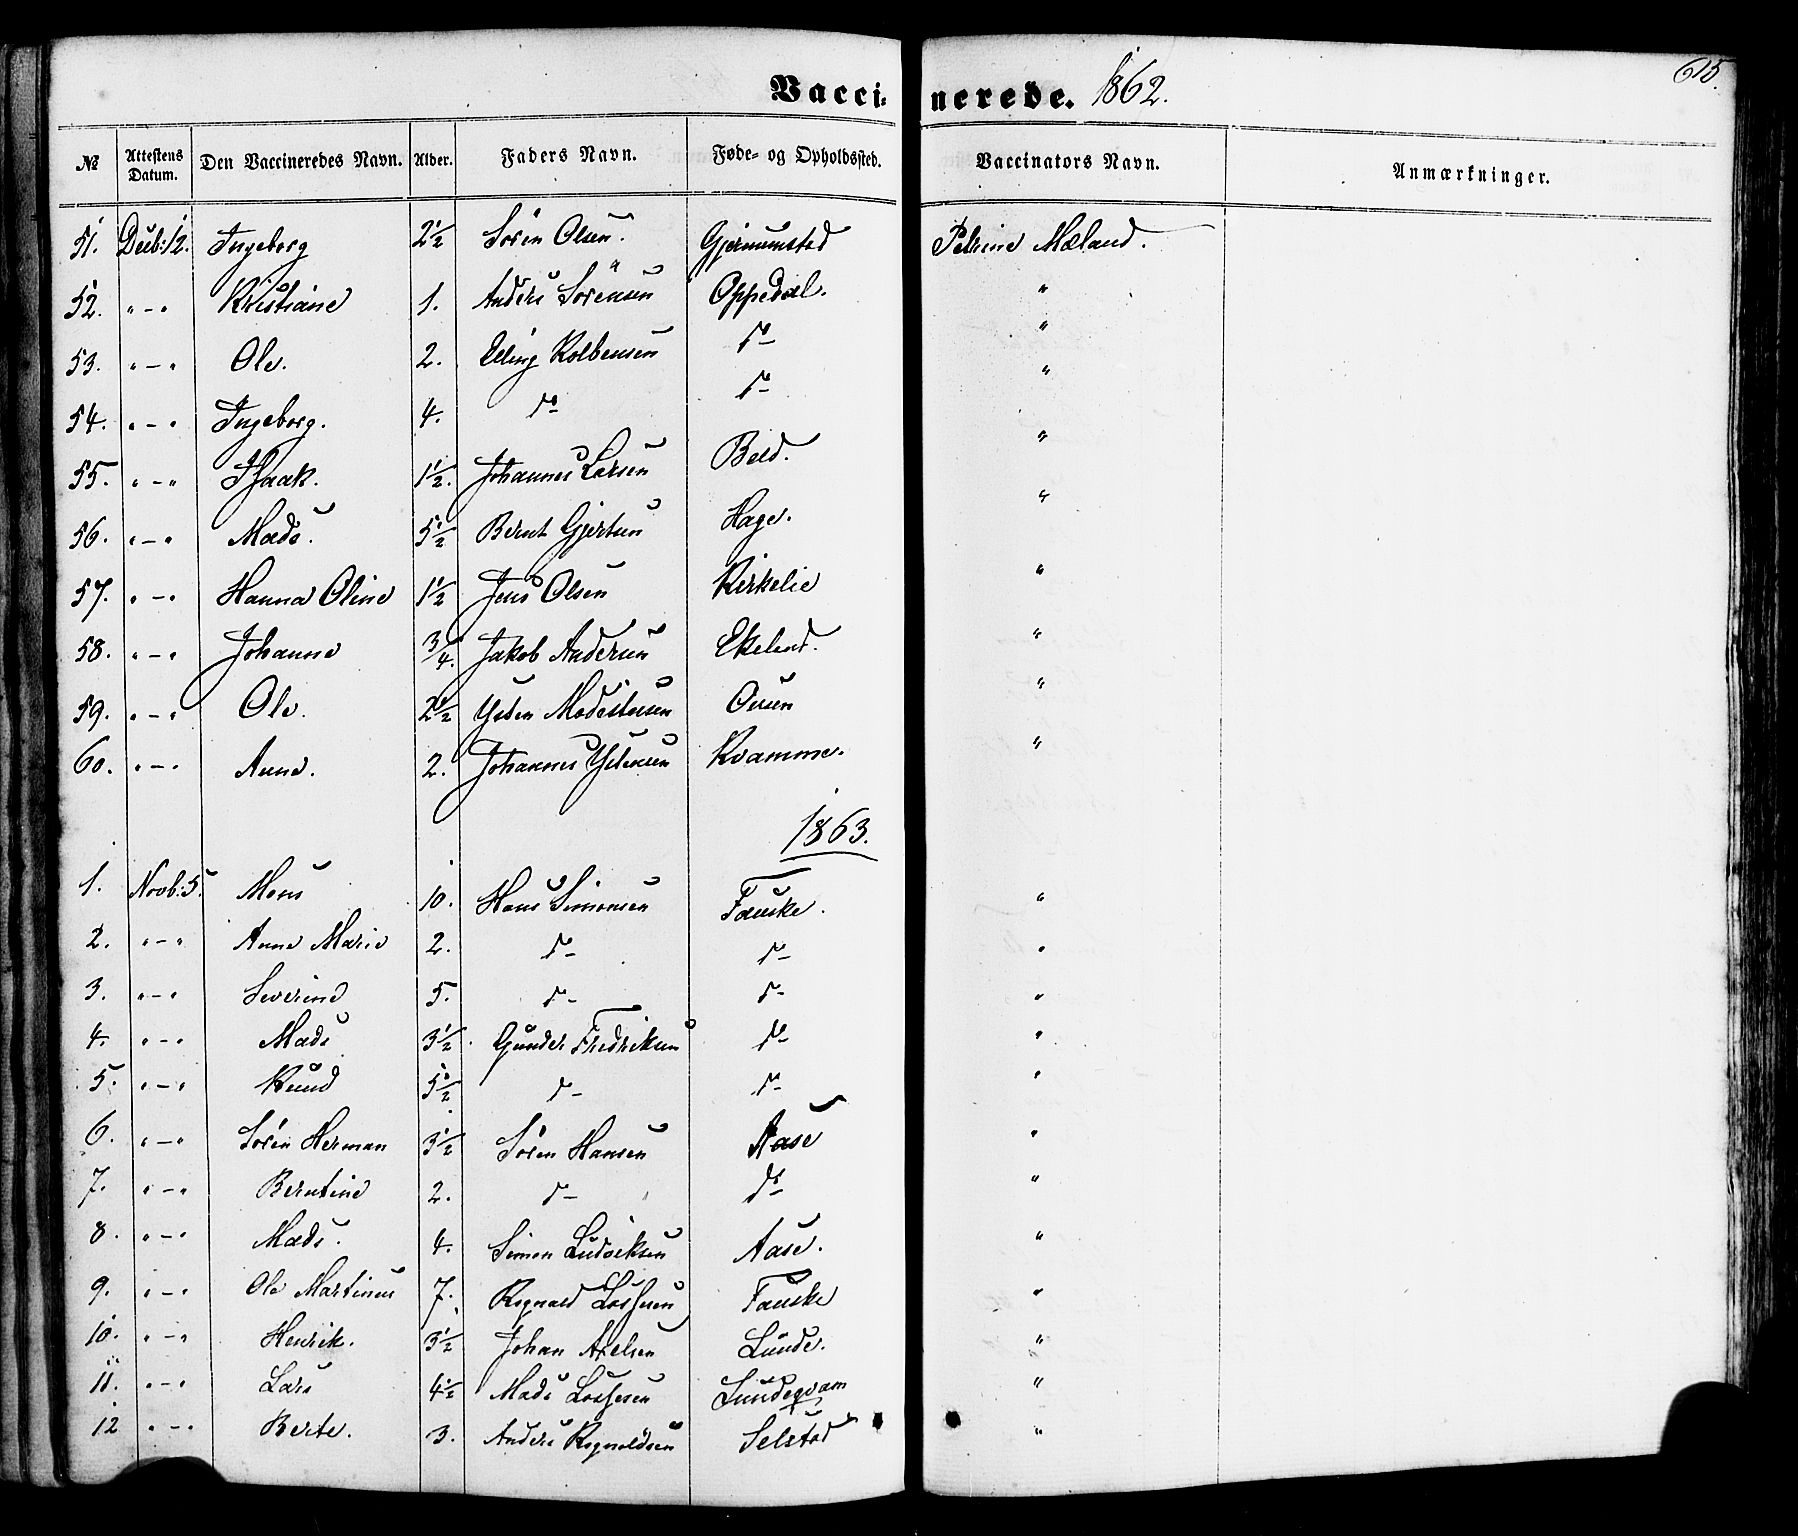 Vaccinerede. 1862.
615.
№ Attestens Datum. Den Vaccineredes Navn. Alder. Faders Navn. Føde- og Opholdssted. Vaccinators Navn. Anmærkninger.
51. Decb: 12. Ingeborg 2½ Sören Olsen. Gjernumstad Petrine Mæland.
52. " - " Kristiane 1. Anders Sörensen Oppedal. "
53. " - " Ole. 2. Elling Kolbensen do "
54. " - " Ingeborg. 4. do do "
55. " - " Isaak. 1½. Johannes Larsen Beld. "
56. " - " Mads. 5½ Bernt Gjertsen Hage. "
57. " - " Hanna Oline 1½ Jens Olsen Kirkelie "
58. " - " Johanne 3/4. Jakob Andersen Ekeland. "
59. " - " Ole. 2½ Ysten Modestusen "
60. " - " Anne. 2. Johannes Ystensen Kvamme. "
1863.
1. Novb: 5. Mons 10. Hans Simonsen Fauske. "
2. " - " Anne Marie 2. do do "
3. " - " Severine 5. do do "
4. " - " Mads 3½. Gunder Fredriksen do "
5. " - " Knud 5½ do do "
6. " - " Sören Herman 3½ Sören Hansen Aase "
7. " - " Berntine 2. do do "
8. " - " Mads. 4. Simon Ludviksen Aase. "
9. " - " Ole Martinus 7. Rognald Lassesen Fauske "
10. " - " Henrik. 3½ Johan Axelsen Lunde. "
11. " - " Lars 4½ Mads Lassesen Lundeqvam "
12 " - " Berte. 3. Anders Rognaldsen Selstad "